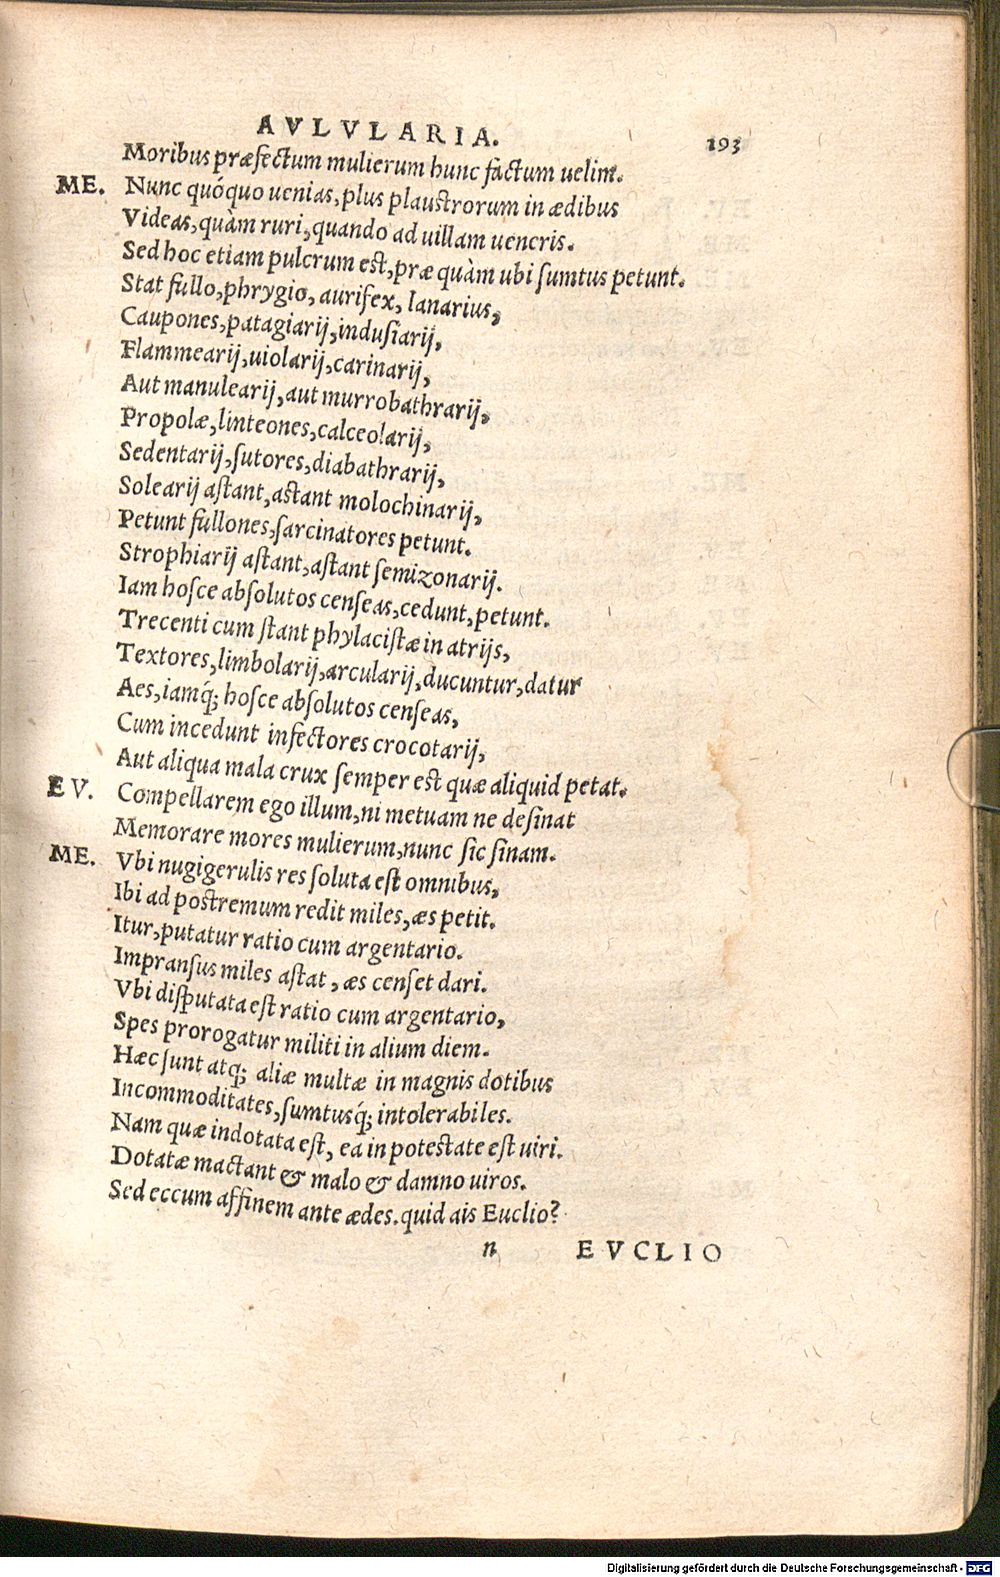 AVLVLARIA. 193
Moribus præfectum mulierum hunc factum uelim.
ME. Nunc quóquo uenias, plus plaustrorum in ædibus
Videas, quàm ruri, quando ad uillam ueneris.
Sed hoc etiam pulcrum est, præ quàm ubi sumtus petunt.
Stat fullo, phrygio, aurifex, lanarius,
Caupones, patagiarij, indusiarij,
Flammearij, uiolarij, carinarij,
Aut manulearij, aut murrobathrarij,
Propolæ, linteones, calceolarij,
Sedentarij, sutores, diabathrarij,
Solearij astant, astant molochinarij,
Petunt fullones, sarcinatores petunt.
Strophiarij astant, astant semizonarij.
Iam hosce absolutos censeas, cedunt, petunt.
Trecenti cum stant phylacistæ in atrijs,
Textores, limbolarij, arcularij, ducuntur, datur
Aes, iamq́; hosce absolutos censeas,
Cum incedunt infectores crocotarij,
Aut aliqua mala crux semper est quæ aliquid petat.
EV. Compellarem ego illum, ni metuam ne desinat
Memorare mores mulierum, nunc sic sinam.
ME. Vbi nugigerulis res soluta est omnibus,
Ibi ad postremum redit miles, æs petit.
Itur, putatur ratio cum argentario.
Impransus miles astat, æs censet dari.
Vbi disputata est ratio cum argentario,
Spes prorogatur militi in alium diem.
Hæc sunt atq; aliæ multæ in magnis dotibus
Incommoditates, sumtusq́; intolerabiles.
Nam quæ indotata est, ea in potestate est uiri.
Dotatæ mactant & malo & damno uiros.
Sed eccum affinem ante ædes. quid ais Euclio?
n EVCLIO
Digitalisierung gefördert durch die Deutsche Forschungsgemeinschaft - DFG